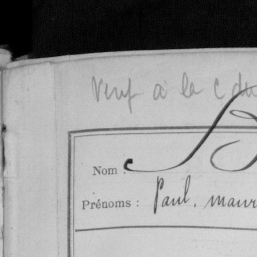 Veuf à la C du
Nom :
Prénoms : Paul, maur